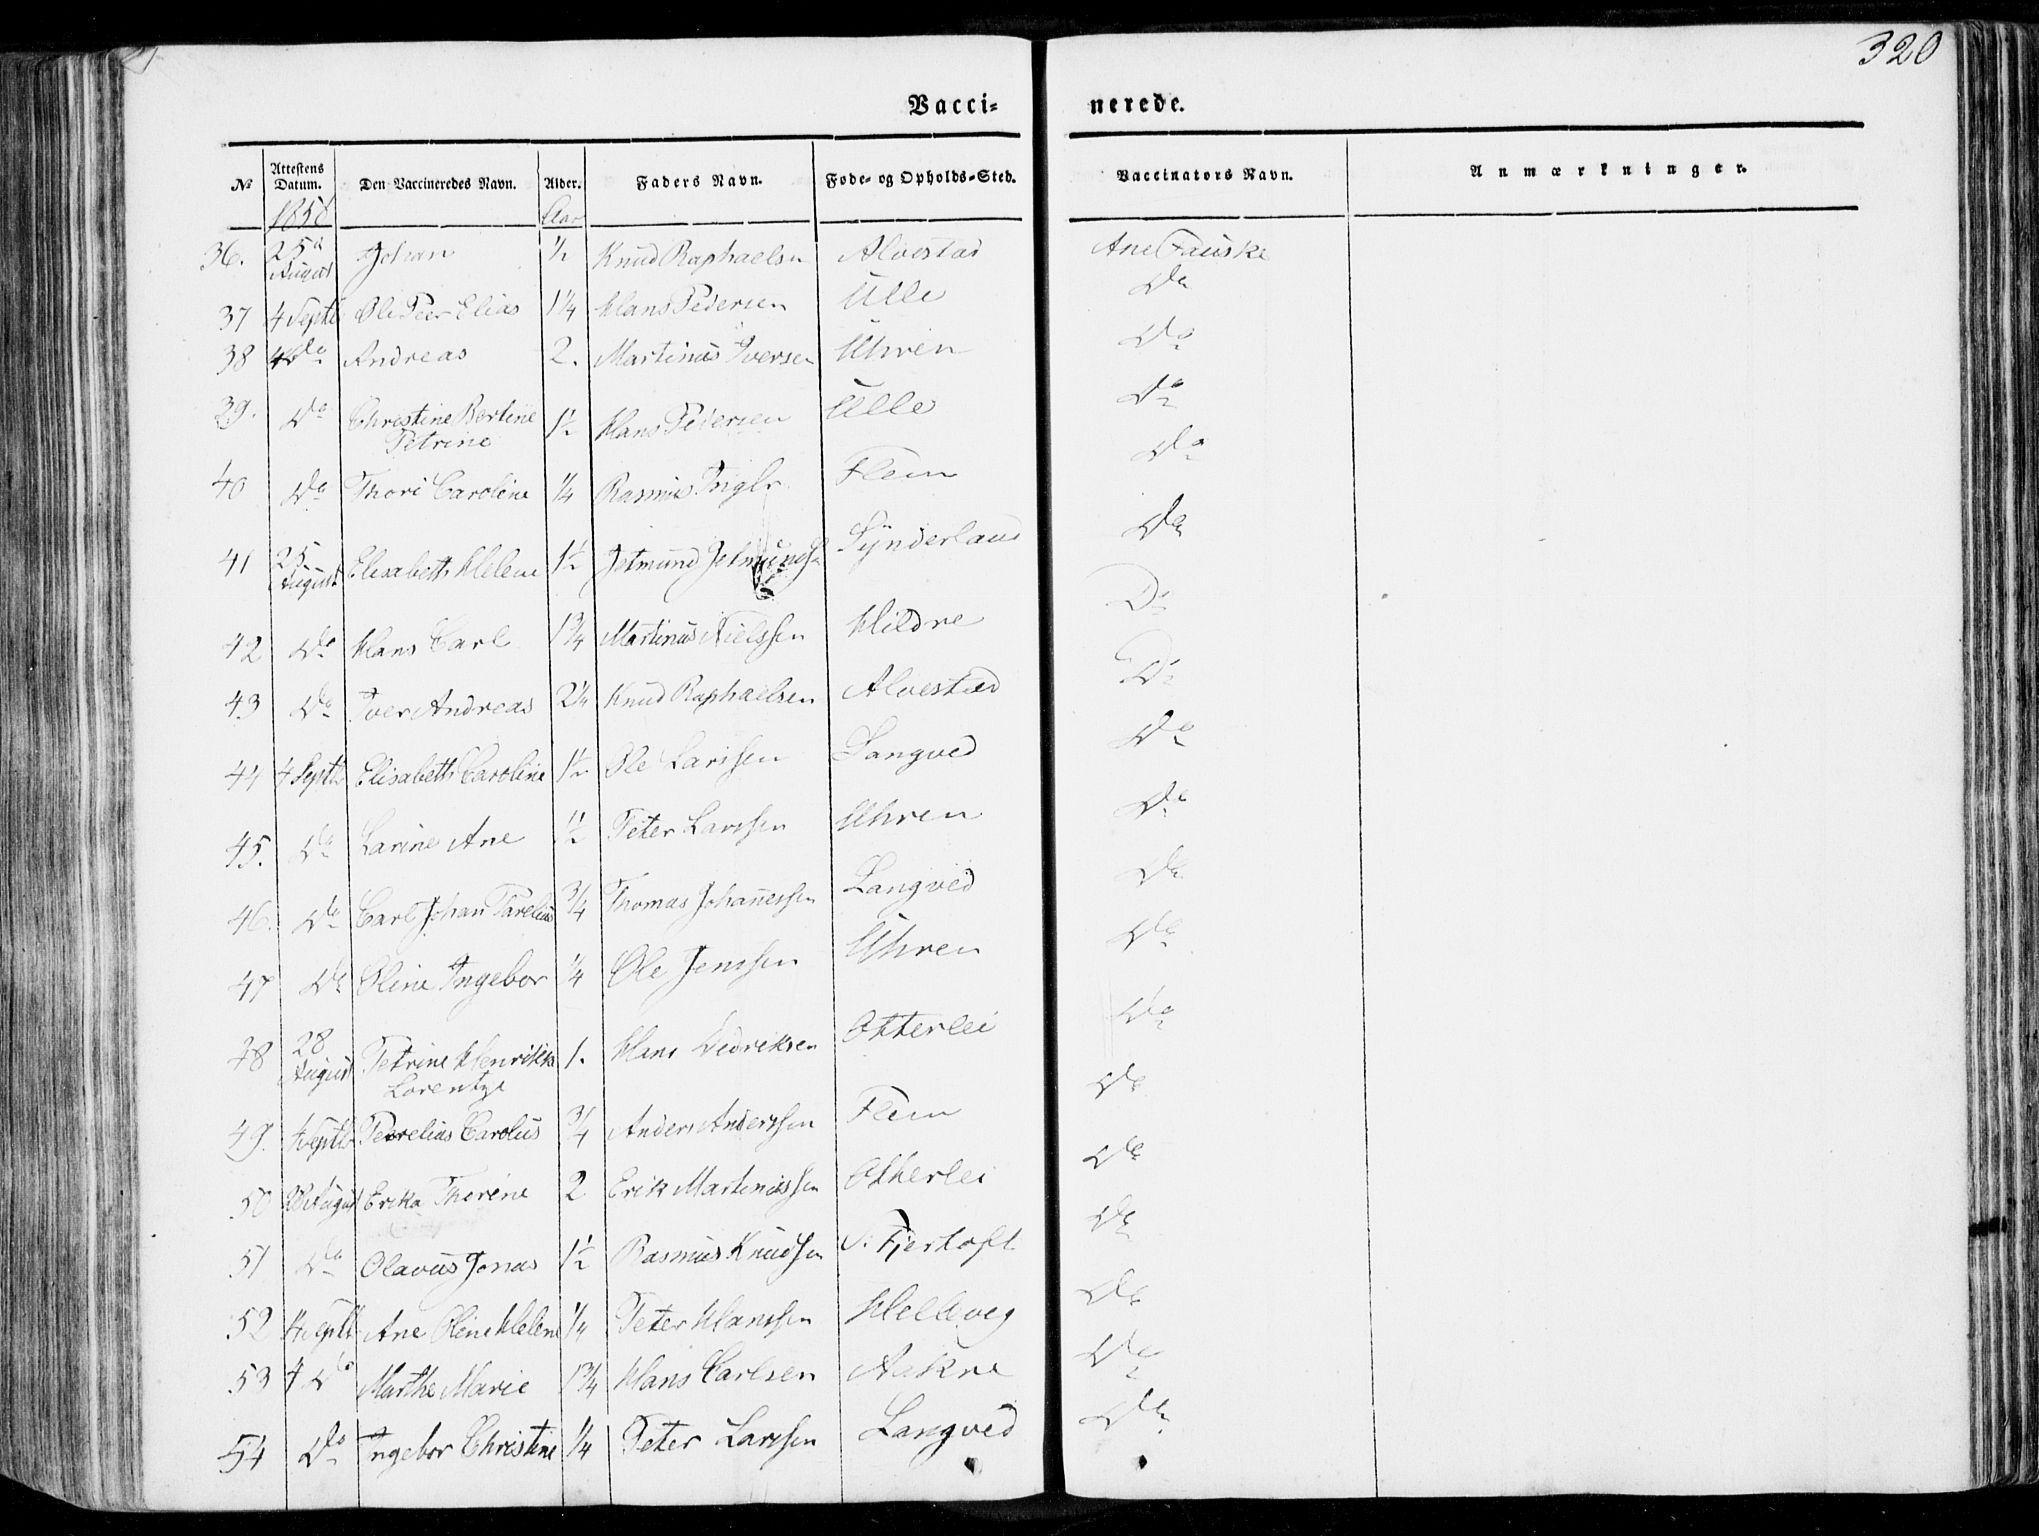 320
Vaccinerede.
No Attestens Datum. Den Vaccineredes Navn. Alder. Faders Navn. Føde- og Opholds-Sted. Vaccinators Navn. Anmærkninger.
Aar
36. 25d August Johan ½ Knud Raphaelsn Alvestad Ane Fauske
37 4 Septb Ole Peer Elias 1¼ Hans Pedersen Ulle Do
38 Do Andreas 2. Martinus Iversen Uhren Do
39. Do Christine Bertine Petrine 1½ Hans Pedersen Ulle Do
40 Do Thori Caroline ¼ Rasmus Flem Do
41 25 August Elisabeth Helene 1½ Jetmund Jetmundsn Synderland Do
42 Do Hans Carl 1¾ Martinus Nielssen Hildre Do
43 Do Iver Andreas 2¼ Knud Raphaelsen Alvestad Do
44 4 Septb Elisabeth Caroline 1½ Ole Larssen Langved Do
45. Do Larine Ane 1½ Peter Larssen Uhren Do
46. Do Carl Johan Parelius ¾ Thomas Johanessen Langved Do
47 Do Oline Ingebor ¼ Ole Jenssen Uhren Do
48 28 August Petrine Henrikke Lorentze 1. Hans Dedriksen Otterlei Do
49. 4 Septb Perelius Carolus ¾ Anders Anderssen Flem Do
50 28 August Erika Thorine 2 Erik Martinussen Otterlei Do
51 Do Olavus Jonas 1½ Rasmus Knudsen S. Fjertoft Do
52 4 Septb Ane Oline Helene ¼ Peter Hanssen Helleveg Do
53 4 Do Marthe Marie 1¾ Hans Carlsen Aakre Do
54 Do Ingebor Christine ¼ Peter Larssen Langved Do